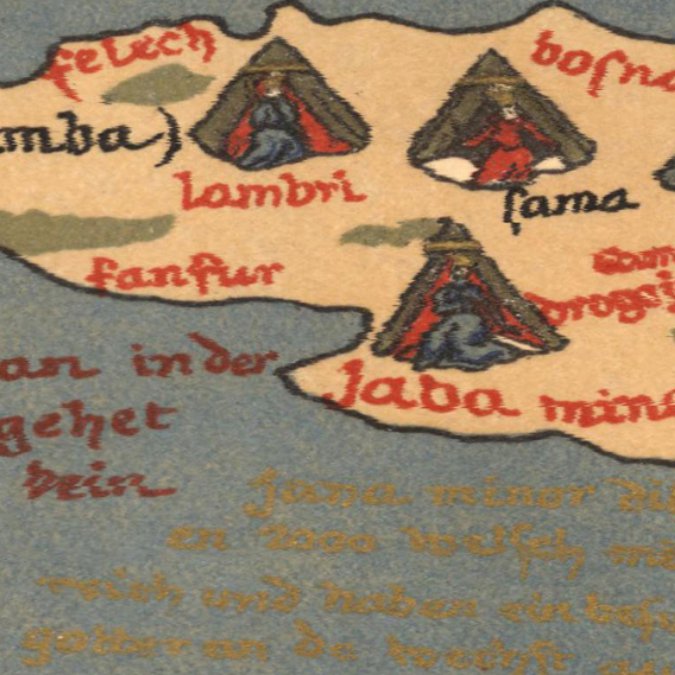 felech
bosna
mba)
lambri
sama
fanfur
an in der
gehet
dein
Java min
Jana minor di
en 2000 welsch m
reich und haben ein bes
gotter an da wechst